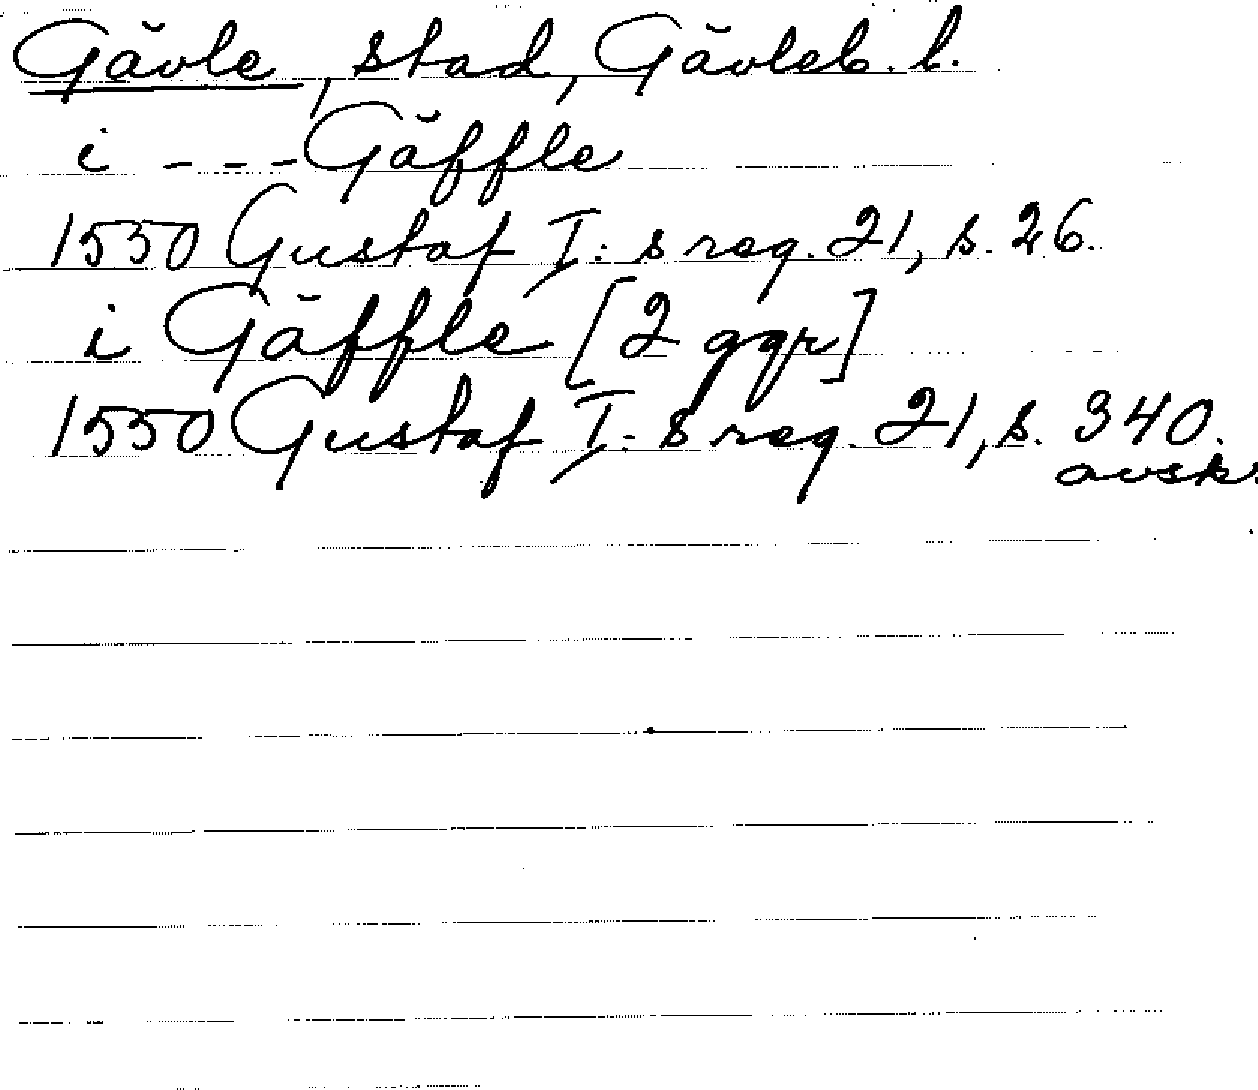 Gävle, stad, Gävleb. l.
i - - - Gäffle
1550 Gustaf I:s reg. 21, s. 26.
i Gäffle [2 ggr]
1550 Gustaf I:s reg. 21, s. 340.
avskr.